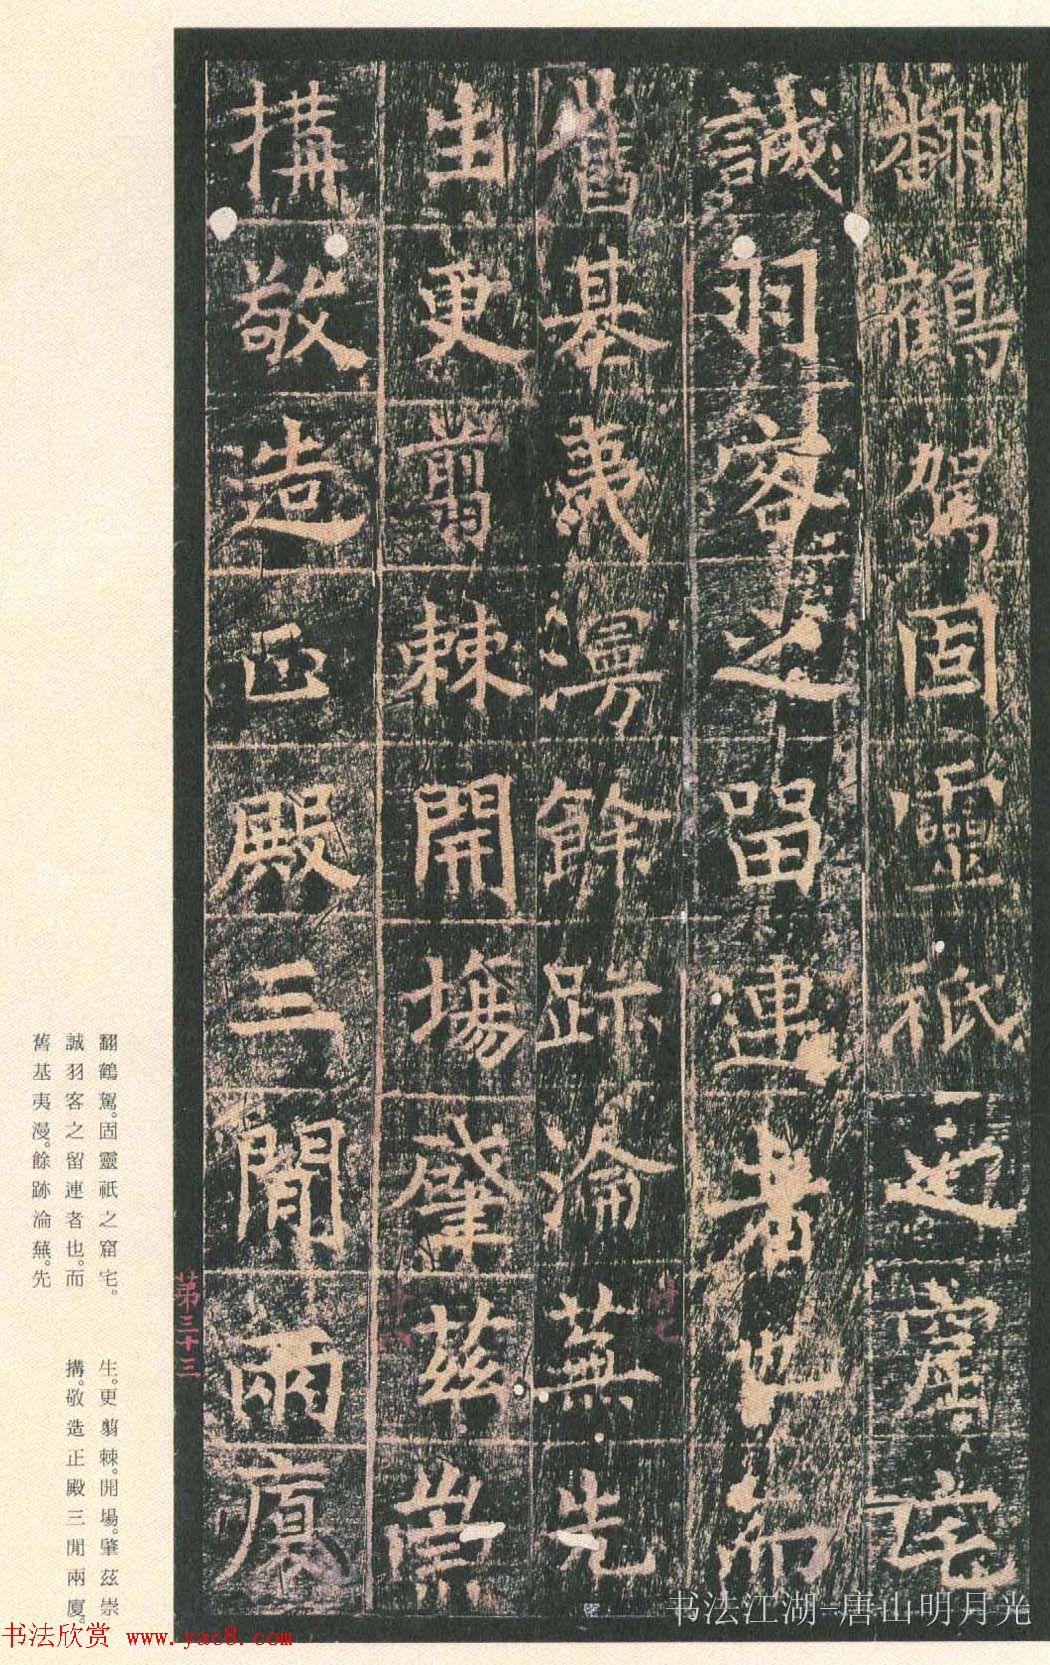 翻鶴駕固靈祇之窟宅
誠羽客之留連者也而
舊基夷漫餘跡淪蕪先
生更翦棘開場肇茲崇
搆敬造正殿三間兩廈
翻鶴駕。固靈祇之窟宅。
誠羽客之留連者也。而
舊基夷漫。餘跡淪蕪。先
生。更翦棘。開場。肇茲崇
搆。敬造正殿三間兩廈。
第三十三
书法江湖-唐山明月光
书法欣赏 www.yac8.com